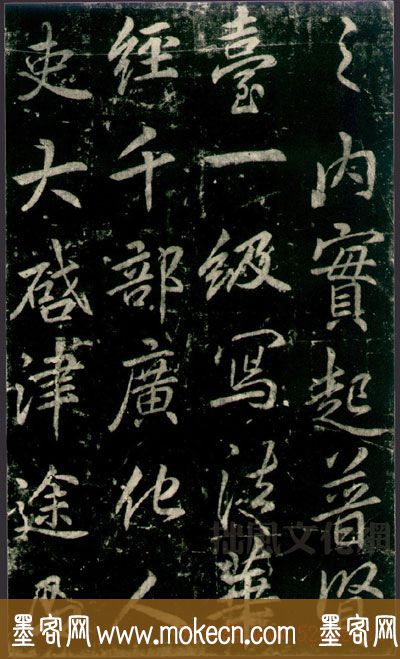 之内實起普賢
臺一級寫法華
經千部廣化人
吏大啓津途
拙風文化網
墨客网 www.mokecn.com 墨客网